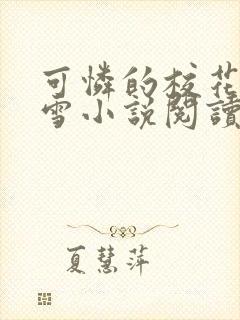 可憐的校花
雪小說閱讀
夏慧萍